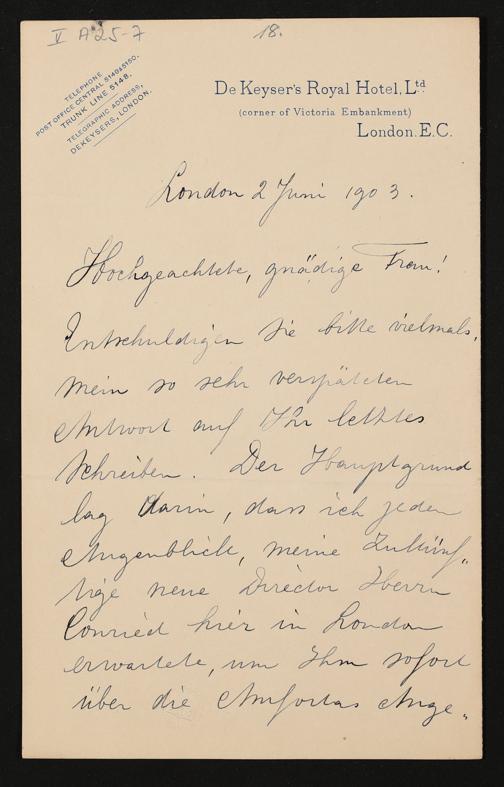 V A 25-7
18.
TELEPHONE
POST OFFICE CENTRAL 5149&5150.
TRUNK LINE 5148.
TELEGRAPHIC ADDRESS,
DEKEYSERS, LONDON.
De Keyser's Royal Hotel, Ltd.
(corner of Victoria Embankment)
London. E.C.
London 2 Juni 1903.
Hochgeachtete, gnädige Frau!
Entschuldigen Sie bitte vielmals,
mein so sehr verspäteten
Antwort auf Ihr letztes
Schreiben. Der Hauptgrund
lag darin, dass ich jeden
Augenblick, meine Zukünf„
tige neue Director Herrn
Conried hier in London
erwartete, um Ihm sofort
über die Amfortas Ange„